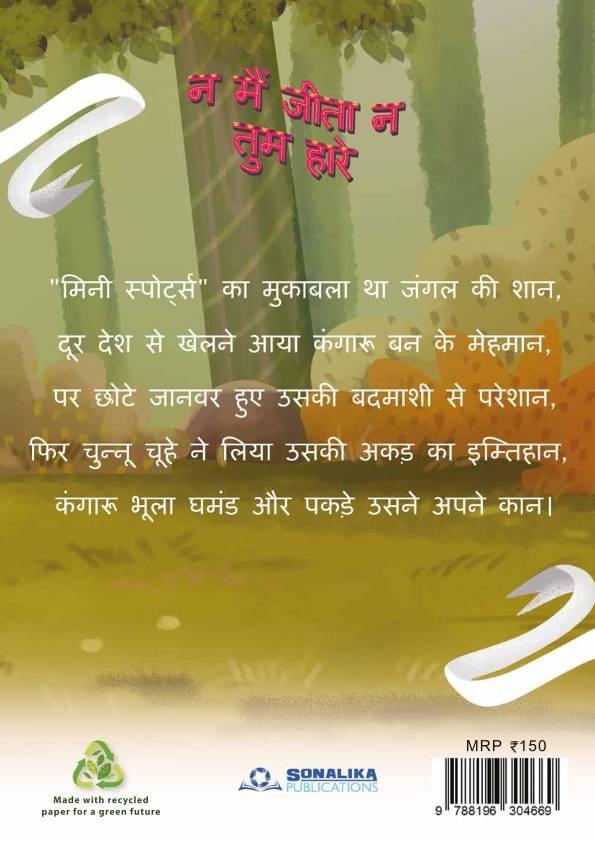 न मैं जीता न
तुम हारे
"मिनी स्पोर्ट्स" का मुकाबला था जंगल की शान,
दूर देश से खेलने आया कंगारू बन के मेहमान,
पर छोटे जानवर हुए उसकी बदमाशी से परेशान,
फिर चुन्नू चूहे ने लिया उसकी अकड़ का इम्तिहान,
कंगारू भूला घमंड और पकड़े उसने अपने कान।
MRP ₹150
Made with recycled
paper for a green future
SONALIKA
PUBLICATIONS
9 788196 304669